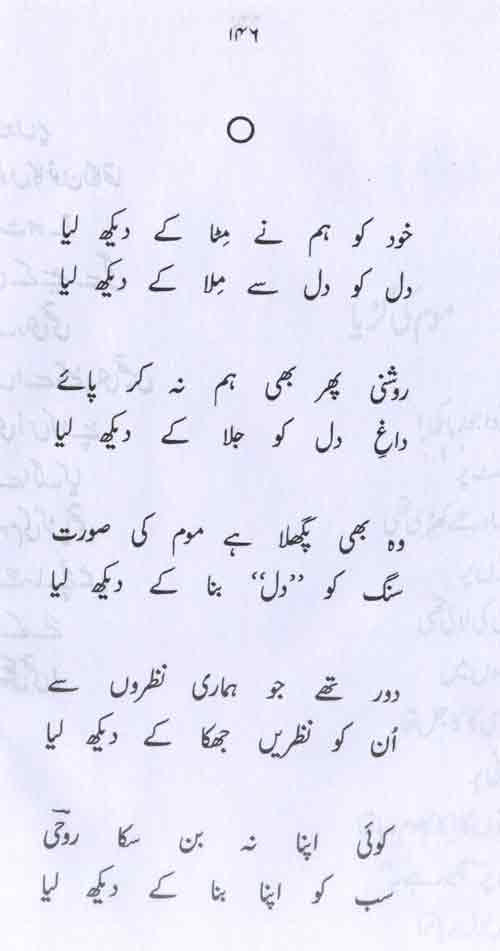 ۱۴۶
خود کو ہم نے مِٹا کے دیکھ لیا
دل کو دل سے مِلا کے دیکھ لیا
روشنی پھر بھی ہم نہ کر پائے
داغِ دل کو جلا کے دیکھ لیا
وہ بھی پگھلا ہے موم کی صورت
سنگ کو ”دل“ بنا کے دیکھ لیا
دور تھے جو ہماری نظروں سے
اُن کو نظریں جھکا کے دیکھ لیا
کوئی اپنا نہ بن سکا روحیؔ
سب کو اپنا بنا کے دیکھ لیا